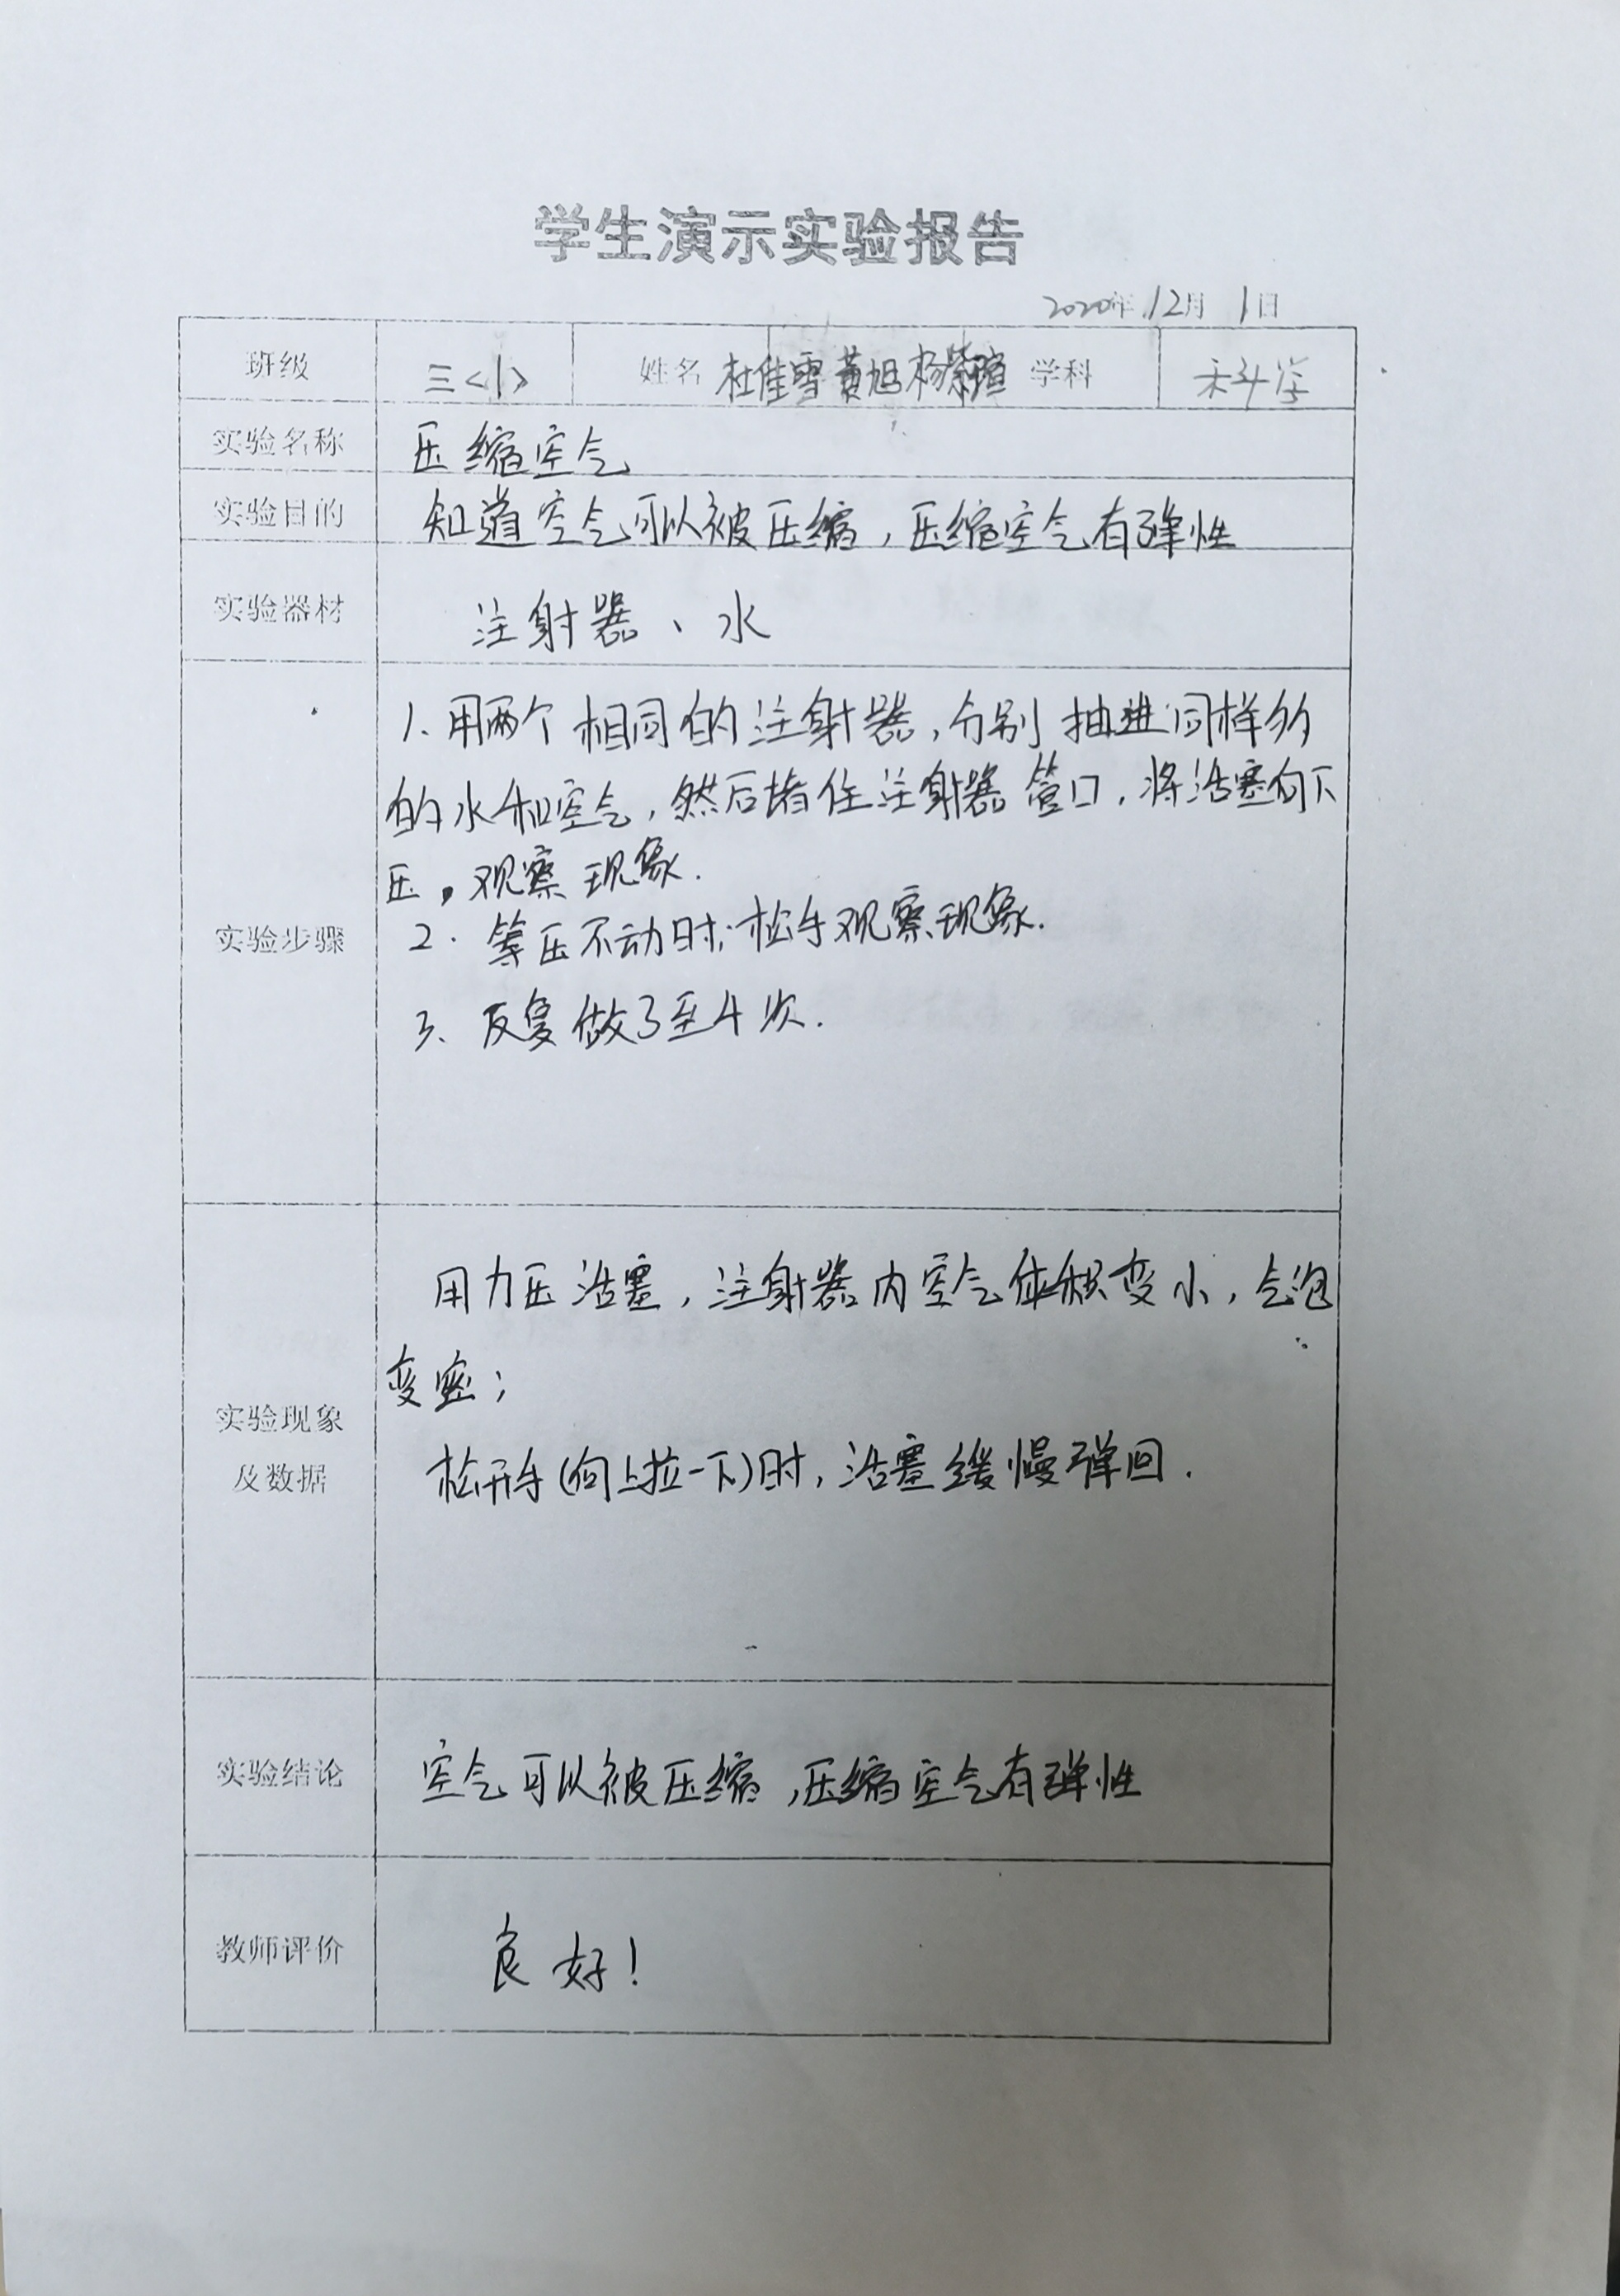 学生演示实验报告
2020年12月1日
班级 三<1> 姓名 杜佳雪 黄旭 杨紫瑄 学科 科学
实验名称 压缩空气
实验目的 知道空气可以被压缩，压缩空气有弹性
实验器材 注射器、水
1、用两个相同的注射器，分别抽进同样多
的水和空气，然后堵住注射器管口，将活塞向下
压，观察现象.
实验步骤 2. 等压不动时，松手观察现象.
3、反复做3至4次.
用力压活塞，注射器内空气体积变小，气泡
变密；
实验现象
及数据 松开手(向上拉一下)时，活塞缓慢弹回.
实验结论 空气可以被压缩，压缩空气有弹性
教师评价 良好！